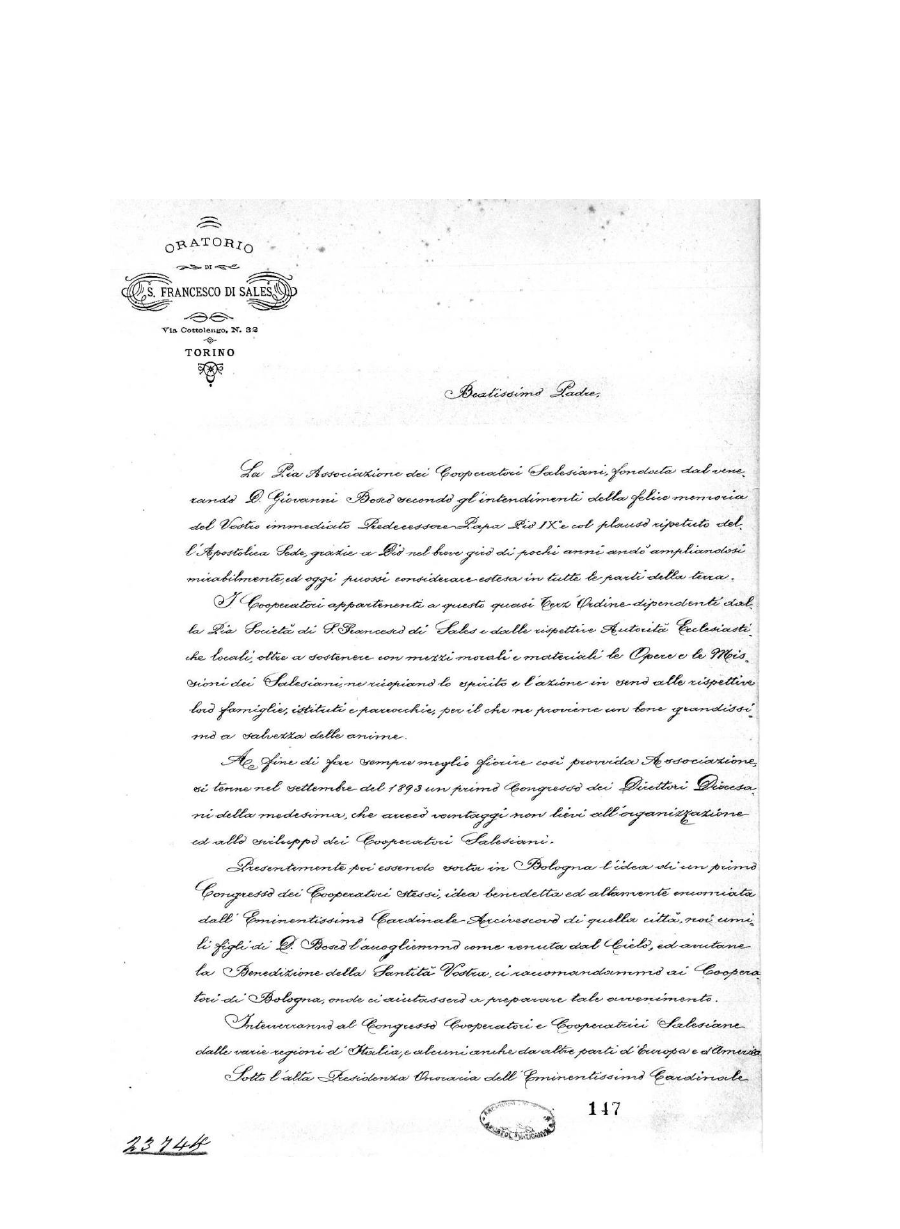 ORATORIO
DI
S. FRANCESCO DI SALES
Via Cottolengo, N. 32
TORINO
Beatissimo Padre,
La Pia Associazione dei Cooperatori Salesiani, fondata dal vene-
rando D. Giovanni Bosco secondo gl'intendimenti della felice memoria
del Vostro immediato Predecessore Papa Pio IX e col plauso ripetuto del-
l'Apostolica Sede, grazie a Dio nel breve giro di pochi anni andò ampliandosi
mirabilmente, ed oggi puossi considerare estesa in tutte le parti della terra.
I Cooperatori appartenenti a questo quasi Terz'Ordine dipendenti dal-
la Pia Società di S. Francesco di Sales e dalle rispettive Autorità Ecclesiasti-
che locali, oltre a sostenere con mezzi morali e materiali le Opere e le Mis-
sioni dei Salesiani, ne ricopiano lo spirito e l'azione in seno alle rispettive
loro famiglie, istituti e parrocchie, per il che ne proviene un bene grandissi-
mo a salvezza delle anime.
A fine di far sempre meglio fiorire così provvida Associazione,
si tenne nel settembre del 1893 un primo Congresso dei Direttori Diocesa-
ni della medesima, che arrecò vantaggi non lievi all'organizzazione
ed allo sviluppo dei Cooperatori Salesiani.
Presentemente poi essendo sorta in Bologna l'idea di un primo
Congresso dei Cooperatori stessi, idea benedetta ed altamente encomiata
dall'Eminentissimo Cardinale-Arcivescovo di quella città, noi umi-
li figli di D. Bosco l'accogliemmo come venuta dal Cielo, ed avutane
la Benedizione della Santità Vostra, ci raccomandammo ai Coopera-
tori di Bologna, onde ci aiutassero a preparare tale avvenimento.
Interverranno al Congresso Cooperatori e Cooperatrici Salesiane
dalle varie regioni d'Italia, e alcuni anche da altre parti d'Europa e d'America
Sotto l'alta Presidenza Onoraria dell'Eminentissimo Cardinale
147
23744